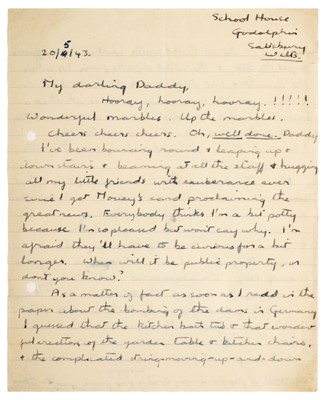 School House
Godolphin
Salisbury
Wilts.
20/5/43.
My darling Daddy,
Hooray, hooray, hooray. !!!!!
Wonderful marbles. Up the marbles.
Cheers cheers cheers. Oh, well done Daddy
I've been bouncing round & leaping up &
down stairs & beaming at all the staff & hugging
all my little friends with exuberance ever
since I got Mouey's card proclaiming the
great news. Everybody thinks I'm a bit potty
because I'm so pleased but won't say why. I'm
afraid they'll have to be curious for a bit
longer. When will it be public property, or
dont you know?
As a matter of fact as soon as I read in the
paper about the bombing of the dams in Germany
I guessed that the kitchen bath tub & that wonder-
ful erection of the garden table & kitchen chairs,
& the complicated string-moving-up-and-down